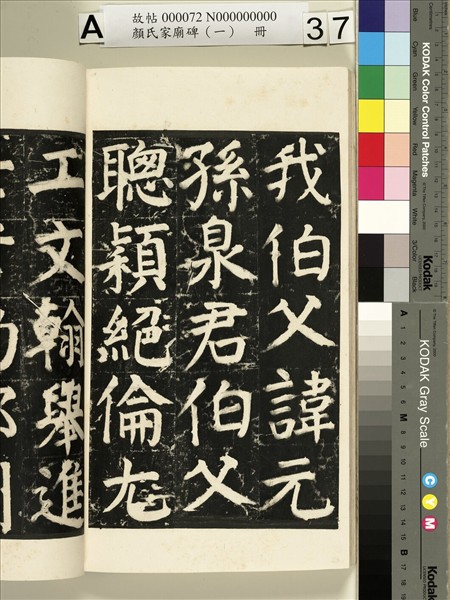 A
故帖 000072 N000000000
顏氏家廟碑（一） 冊
37
我伯父諱元
孫泉君伯父
聰穎絕倫尤
工文翰舉進
KODAK Color Control Patches
Blue
Cyan
Green
Yellow
Red
Magenta
White
3/Color
Black
Kodak
KODAK Gray Scale
A
1
2
3
4
5
6
M
8
9
10
11
12
13
14
15
B
17
18
19
C
Y
M
Kodak